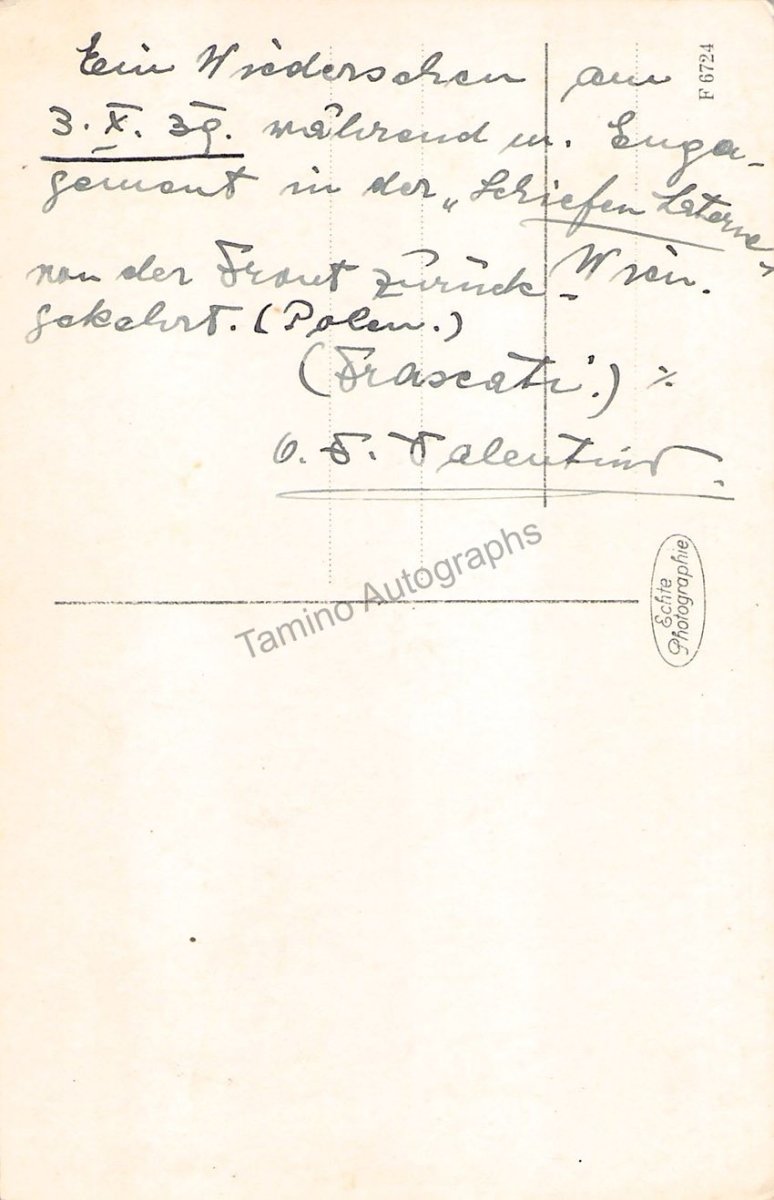 Ein Wiedersehen am
3. X. 39. während m. Enga-
gement in der „Schiefen Laterne"
Wien.
von der Front zurück-
gekehrt. (Polen.)
(Frascati.) ⁒
O. F. Valentino.
F 6724
Echte
Photographie
Tamino Autographs